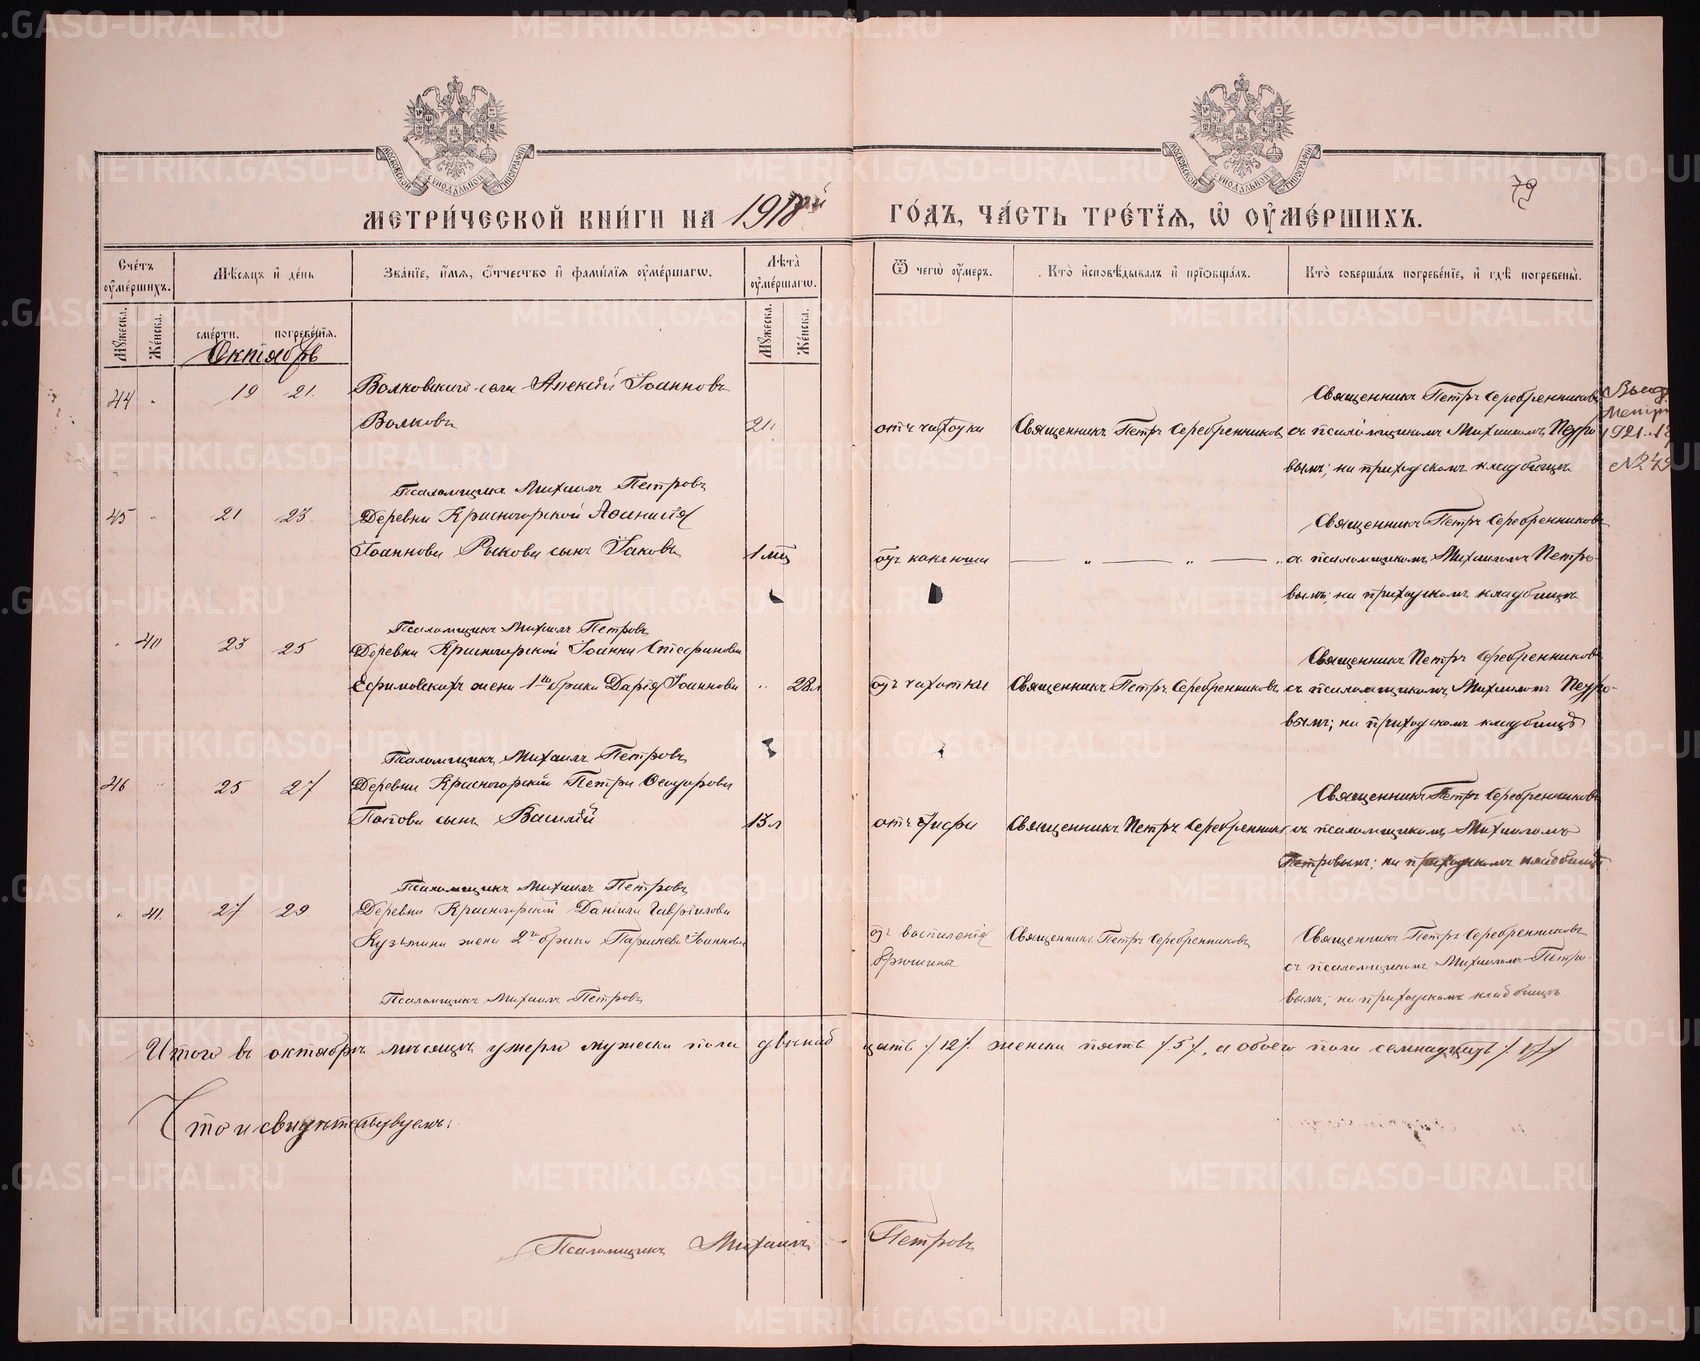 МЕТРИ́ЧЕСКОЙ КНИ́ГИ НА 1918й
ГО́ДЪ, ЧА́СТЬ ТРЕ́ТЇѦ, Ѡ҆ ОУ҆МЕ́РШИХЪ.
79
МОСКОВСКОЙ СѴНОДАЛЬНОЙ ТИПОГРАФІИ
МОСКОВСКОЙ СѴНОДАЛЬНОЙ ТИПОГРАФІИ
Сче́тъ оу҆ме́ршихъ.
Мѣ́сяцъ и҆ де́нь
Зва́нїе, и҆́мѧ, ѻ҆́тчество и҆ фами́лїѧ оу҆ме́ршагѡ.
Лѣта̀ оу҆ме́ршагѡ.
Ѿ чегѡ̀ оу҆́меръ.
Кто̀ и҆сповѣ́дывалъ и҆ прїѡбща́лъ.
Кто̀ соверша́лъ погребе́нїе, и҆ гдѣ̀ погребены̀.
Мꙋ́жеска. Же́нска. сме́рти. погребе́нїѧ. Мꙋ́жеска. Же́нска.
Октябрь
44 19 21. Волковскаго села Алексѣй Іоанновъ
Волковъ 21 отъ чахотки Священникъ Петръ Серебренниковъ
Священникъ Петръ Серебренниковъ
съ псаломщикомъ Михаиломъ Петро
вымъ; на приходскомъ кладбищѣ
1921
Псаломщикъ Михаилъ Петровъ
45 21 23. Деревни Красногорской Аѳанасія
Іоаннова Рыкова сынъ Іаковъ 1 мѣс отъ коклюша
Священникъ Петръ Серебренниковъ
съ псаломщикомъ Михаиломъ Петро
вымъ; на приходскомъ кладбищѣ
Псаломщикъ Михаилъ Петровъ
40 23 25 Деревни Красногорской Іоанна Стефанова
Ефимовскихъ жена 1го брака Дарія Іоаннова 28л отъ чахотки Священникъ Петръ Серебренниковъ
Священникъ Петръ Серебренниковъ
съ псаломщикомъ Михаиломъ Петро-
вымъ; на приходскомъ кладбищѣ
Псаломщикъ Михаилъ Петровъ
46 25 27 Деревни Красногорской Петра Ѳеодорова
Попова сынъ Василій 13 л отъ тифа Священникъ Петръ Серебренниковъ
Священникъ Петръ Серебренниковъ
съ псаломщикомъ Михаиломъ
Петровымъ; на приходскомъ кладбищѣ
Псаломщикъ Михаилъ Петровъ
41. 27 29. Деревни Красногорской Даніила Гавріилова
Кузьмина жена 2го брака Параскева Іоаннова отъ воспаленія
брюшины Священникъ Петръ Серебренниковъ
Священникъ Петръ Серебренниковъ
съ псаломщикомъ Михаиломъ Петро
вымъ; на приходскомъ кладбищѣ.
Псаломщикъ Михаилъ Петровъ
Итого въ октябрѣ мѣсяцѣ умерло мужеска пола двѣнадцать /12/ женска пять /5/, а обоего пола семнадцать /17/
Что и свидѣтельствуемъ:
Псаломщикъ Михаилъ Петровъ